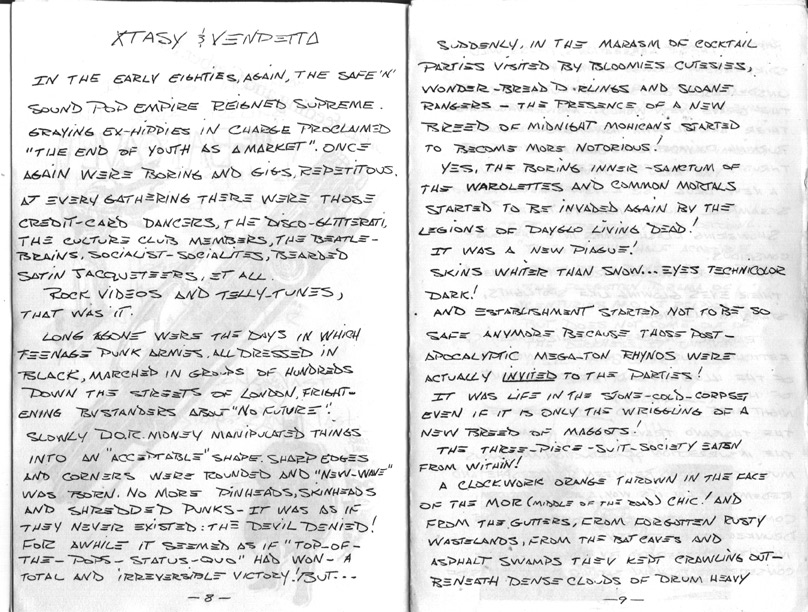 XTASY & VENDETTA
IN THE EARLY EIGHTIES, AGAIN, THE SAFE 'N'
SOUND POP EMPIRE REIGNED SUPREME.
GRAYING EX-HIPPIES IN CHARGE PROCLAIMED
"THE END OF YOUTH AS A MARKET". ONCE
AGAIN WERE BORING AND GIGS, REPETITOUS.
AT EVERY GATHERING THERE WERE THOSE
CREDIT-CARD DANCERS, THE DISCO-GLITTERATI,
THE CULTURE CLUB MEMBERS, THE BEATLE-
BRAINS, SOCIALIST-SOCIALITES, BEARDED
SATIN JACQUETEERS, ET ALL.
ROCK VIDEOS AND TELLY-TUNES,
THAT WAS IT.
LONG AGONE WERE THE DAYS IN WHICH
TEENAGE PUNK ARMIES, ALL DRESSED IN
BLACK, MARCHED IN GROUPS OF HUNDREDS
DOWN THE STREETS OF LONDON, FRIGHT-
ENING BYSTANDERS ABOUT "NO FUTURE"!
SLOWLY D.O.R. MONEY MANIPULATED THINGS
INTO AN "ACCEPTABLE" SHAPE. SHARP EDGES
AND CORNERS WERE ROUNDED AND "NEW-WAVE"
WAS BORN. NO MORE PINHEADS, SKINHEADS
AND SHREDDED PUNKS - IT WAS AS IF
THEY NEVER EXISTED: THE DEVIL DENIED!
FOR AWHILE IT SEEMED AS IF "TOP-OF-
THE-POPS-STATUS-QUO" HAD WON - A
TOTAL AND IRREVERSIBLE VICTORY! BUT...
-8-
SUDDENLY, IN THE MARASM OF COCKTAIL
PARTIES VISITED BY BLOOMIES CUTESIES,
WONDER-BREAD D.RLINGS AND SLOANE
RANGERS - THE PRESENCE OF A NEW
BREED OF MIDNIGHT MOHICANS STARTED
TO BECOME MORE NOTORIOUS!
YES, THE BORING INNER-SANCTUM OF
THE WAROLETTES AND COMMON MORTALS
STARTED TO BE INVADED AGAIN BY THE
LEGIONS OF DAYGLO LIVING DEAD!
IT WAS A NEW PLAGUE!
SKINS WHITER THAN SNOW... EYES TECHNICOLOR
DARK!
AND ESTABLISHMENT STARTED NOT TO BE SO
SAFE ANYMORE BECAUSE THOSE POST-
APOCALYPTIC MEGA-TON RHYNOS WERE
ACTUALLY INVITED TO THE PARTIES!
IT WAS LIFE IN THE STONE-COLD-CORPSE,
EVEN IF IT IS ONLY THE WRIGGLING OF A
NEW BREED OF MAGGOTS!
THE THREE-PIECE-SUIT-SOCIETY EATEN
FROM WITHIN!
A CLOCKWORK ORANGE THROWN IN THE FACE
OF THE MOR (MIDDLE OF THE ROAD) CHIC! AND
FROM THE GUTTERS, FROM FORGOTTEN RUSTY
WASTELANDS, FROM THE BAT CAVES AND
ASPHALT SWAMPS THEY KEPT CRAWLING OUT-
BENEATH DENSE CLOUDS OF DRUM HEAVY
-9-